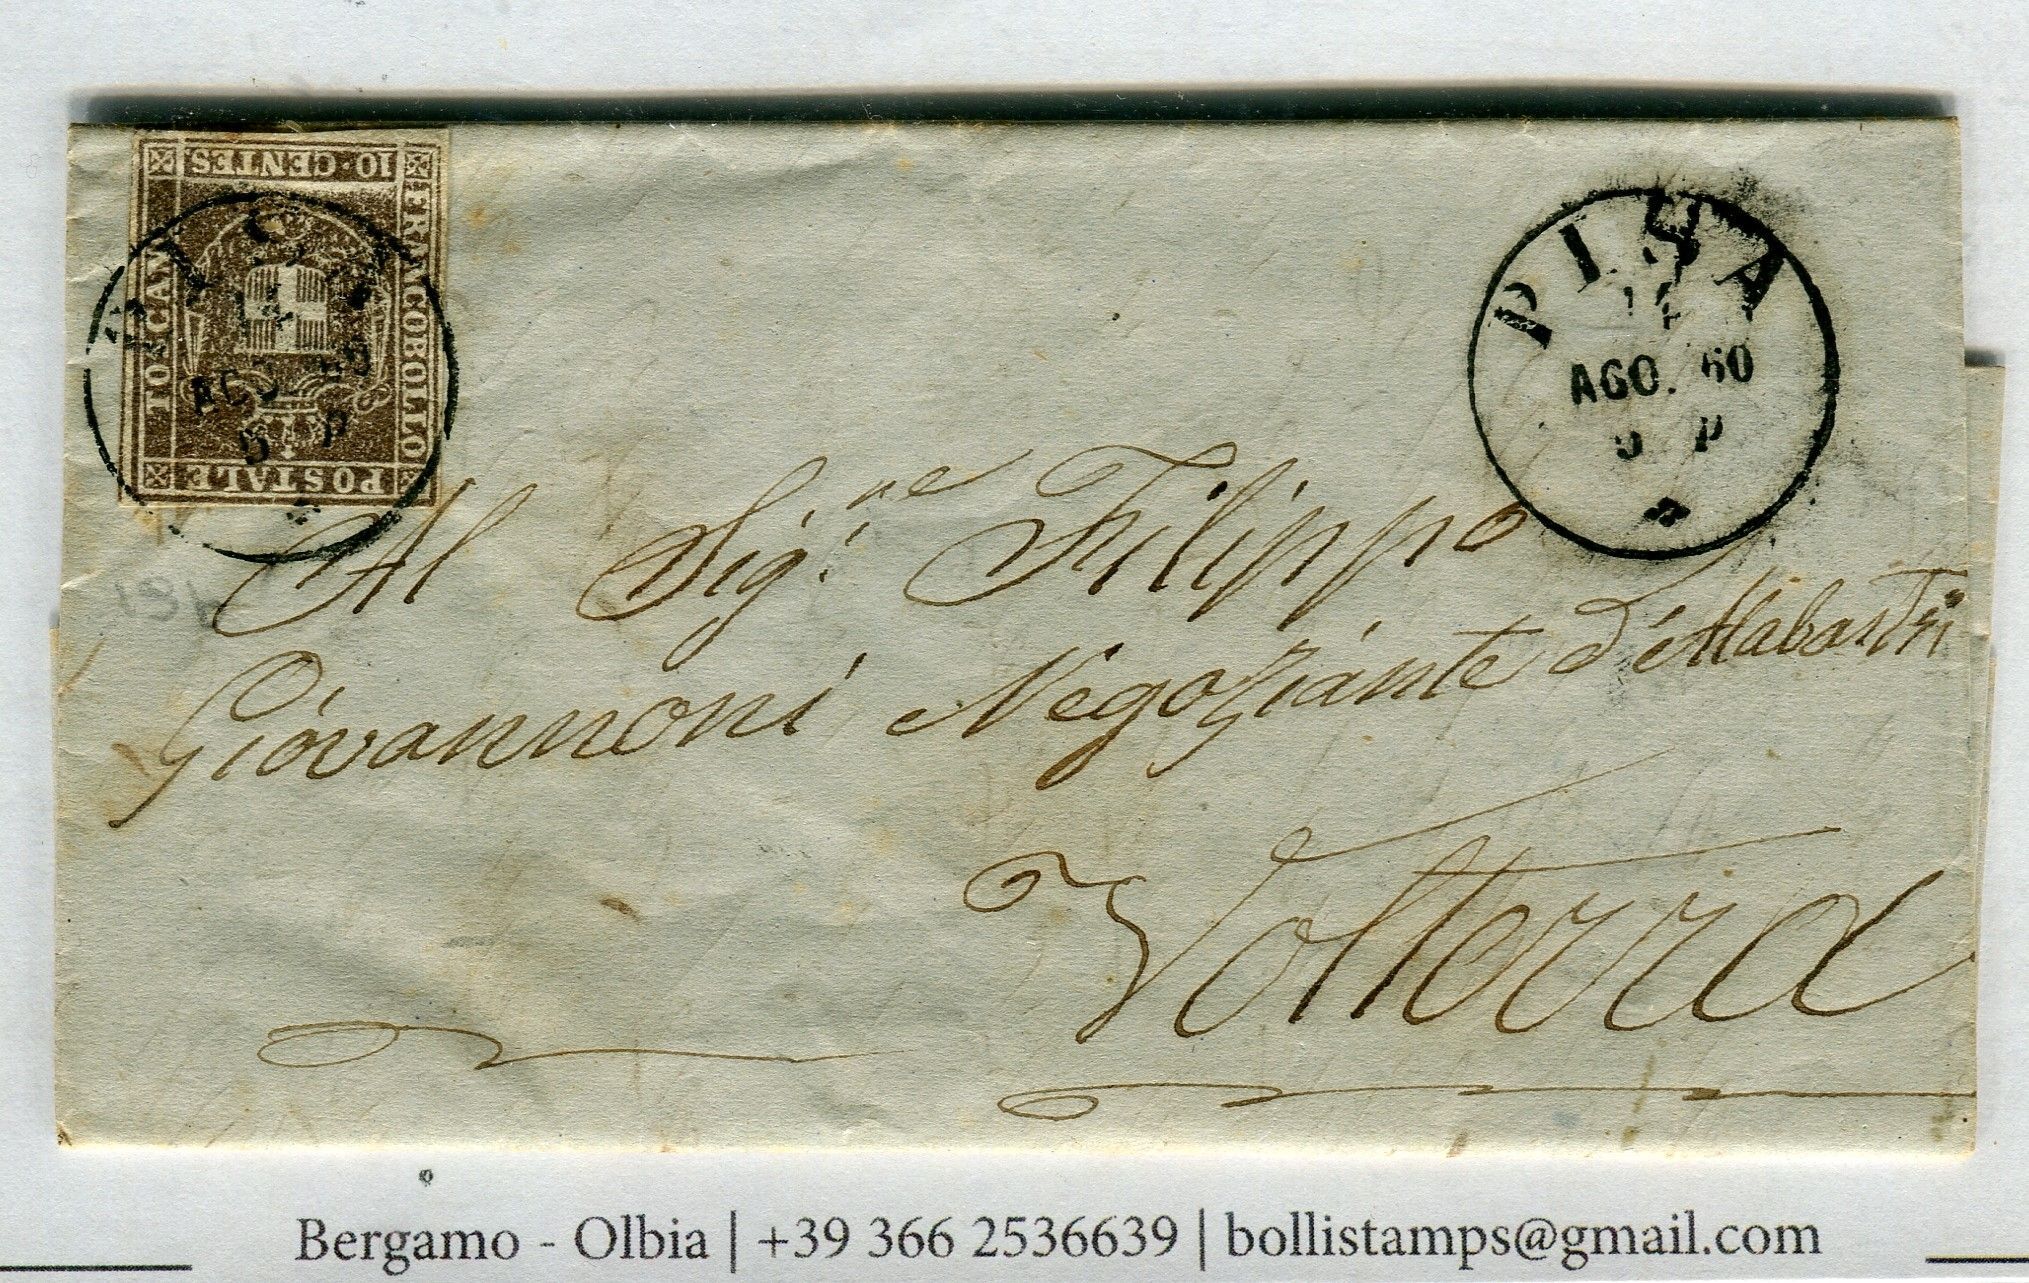 10·CENTES
FRANCOBOLLO
POSTALE
TOSCANO
AGO. 60
5 P
PISA
14
AGO. 60
5 P
Al Sig.re Filippo
Giovannoni Negoziante d'Alabastri
Volterra
Bergamo - Olbia | +39 366 2536639 | bollistamps@gmail.com